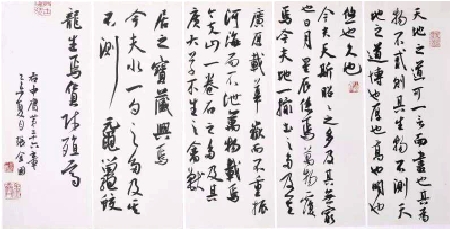 天地之道可一言而盡也其為
物不貳則其生物不測天
地之道博也厚也高也明也
悠也久也
今夫天斯昭昭之多及其無窮
也日月星辰系焉萬物覆
焉今夫地一撮土之多及其
廣厚載華嶽而不重振
河海而不泄萬物載焉
今夫山一卷石之多及其
廣大草木生之禽獸
居之寶藏興焉
今夫水一勺之多及其
不測黿鼉蛟
龍生焉貨財殖焉
右中庸第二十六章